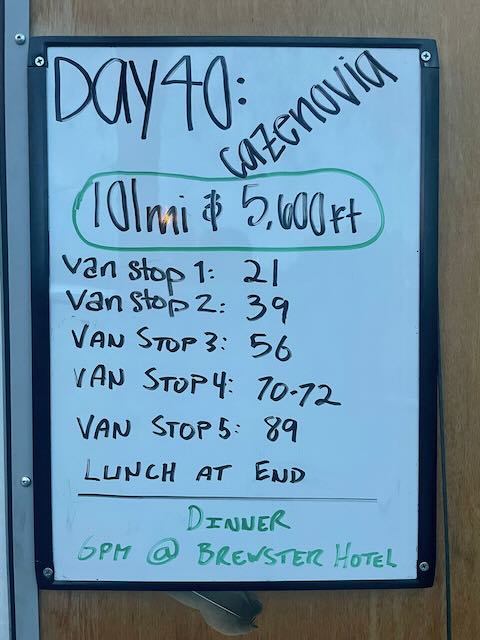 Day 40:
Cazenovia
101mi & 5,600ft
Van Stop 1: 21
Van Stop 2: 39
VAN STOP 3: 56
VAN STOP 4: 70-72
VAN STOP 5: 89
LUNCH AT END
DINNER
6PM @ BREWSTER HOTEL